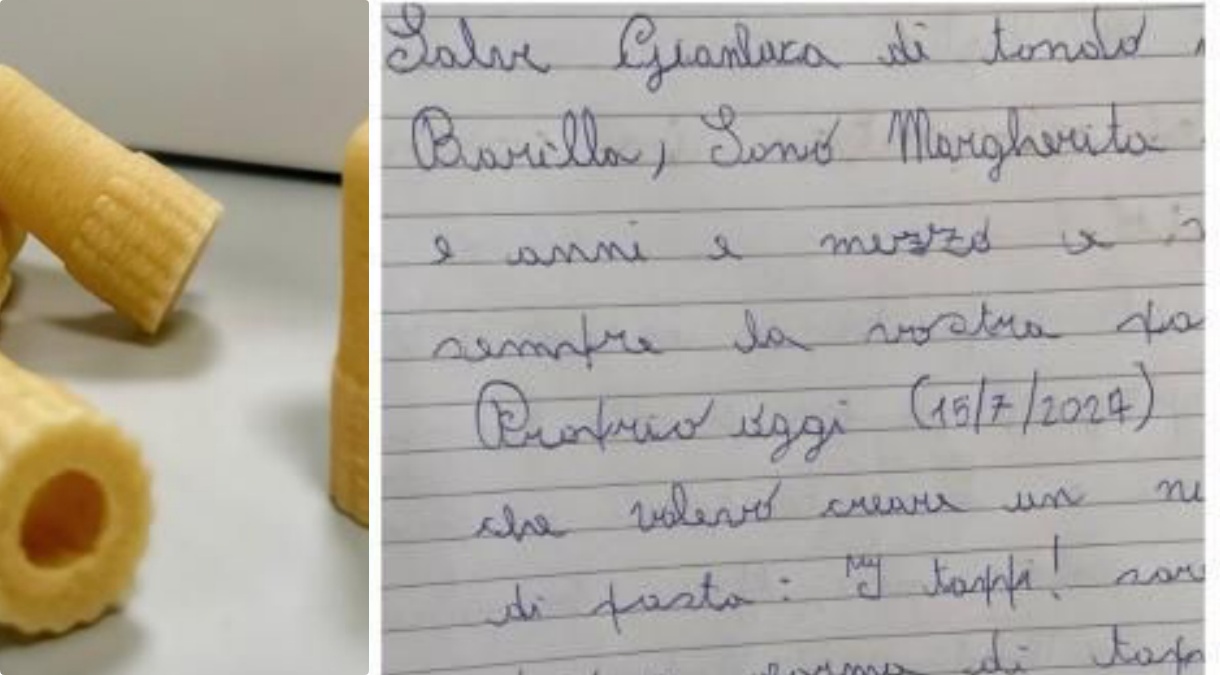 Salve Gianluca di tondo
Barilla, Sono Margherita
e anni e mezzo e
sempre la vostra pa
Proprio oggi (15/7/2024)
che volevo creare un n
di pasta: I tappi! sar
forma di tap